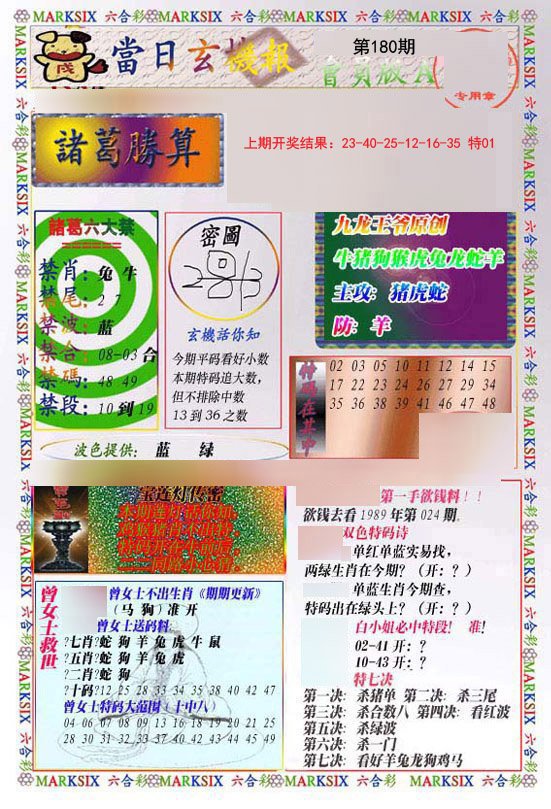 MARKSIX 六合彩 MARKSIX 六合彩 MARKSIX 六合彩 MARKSIX 六合彩
當日玄機報
第180期
會員版A
专用章
諸葛勝算
上期开奖结果：23-40-25-12-16-35 特01
諸葛六大禁
禁肖：兔 牛
禁尾：2 7
禁波：蓝
禁合：08-03 合
禁碼：48 49
禁段：10 到 19
密圖
玄機話你知
今期平码看好小数
本期特码追大数，
但不排除中数
13 到 36 之数
九龙王爷原创
牛猪狗猴虎兔龙蛇羊
主攻：猪虎蛇
防：羊
特码在其中
02 03 05 10 11 12 14 15
17 22 23 24 26 27 29 34
35 36 38 39 41 46 47 48
波色提供： 蓝 绿
宝莲灯传密
第一手欲钱料！！
欲钱去看 1989 年第 024 期.
双色特码诗
单红单蓝实易找，
两绿生肖在今期？（开：？）
单蓝生肖今期查，
特码出在绿头上？（开：？）
白小姐必中特段！ 准！
02-41 开：？
10-43 开：？
特七决
第一决：杀猪单 第二决：杀三尾
第三决：杀合数八 第四决：看红波
第五决：杀绿波
第六决：杀一门
第七决：看好羊兔龙狗鸡马
曾女士救世
曾女士不出生肖《期期更新》
（马 狗）准 开
曾女士送码料：
?七肖?蛇 狗 羊 兔 虎 牛 鼠
?五肖?蛇 狗 羊 兔 虎
?二肖?蛇 狗
?十码?12 25 28 33 34 35 38 40 42 47
曾女士特码大范围（十中八）
04 06 07 08 09 13 16 18 19 20 21 25
28 30 31 32 33 37 40 42 43 44 45 49
MARKSIX 六合彩 MARKSIX 六合彩 MARKSIX 六合彩 MARKSIX 六合彩